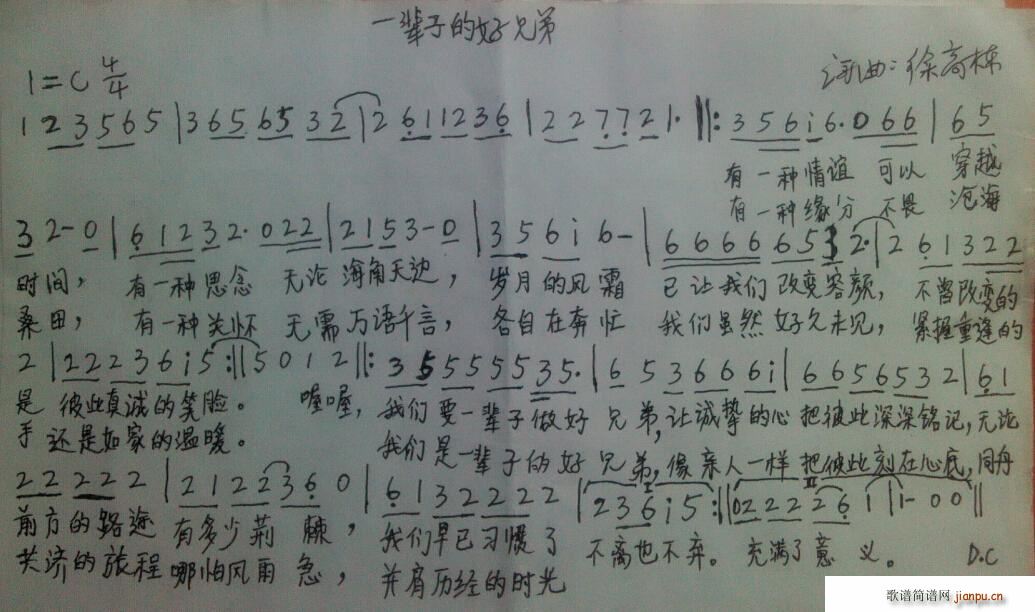 一辈子的好兄弟
1=C 4/4
词曲:徐高栋
1 2 3 5 6 5 | 3 6 5 6 5 3 2 | 2 6 1 1 2 3 6 | 2 2 7 7 2 1· ‖: 3 5 6 i 6· 0 6 6 | 6 5
有一种情谊 可以 穿越
有一种缘分 不畏 沧海
3 2 - 0 | 6 1 2 3 2· 0 2 2 | 2 1 5 3 - 0 | 3 5 6 i 6 - | 6 6 6 6 6 5 3 2· | 2 6 1 3 2 2
时间, 有一种思念 无论 海角天边, 岁月的风霜 已让我们改变容颜, 不曾改变的
桑田, 有一种关怀 无需万语千言, 各自在奔忙 我们虽然好久未见, 紧握重逢的
2 | 2 2 2 3 6 i 5 :‖ 5 0 1 2 ‖: 3 5 5 5 5 5 3 5· | 6 5 3 6 6 6 i | 6 6 5 6 5 3 2 | 6 1
是 彼此真诚的笑脸。 喔喔, 我们要一辈子做好兄弟,让诚挚的心把彼此深深铭记,无论
手还是如家的温暖。 我们是一辈子的好兄弟,像亲人一样把彼此刻在心底,同舟
2 2 2 2 2 | 2 1 2 2 3 6 0 | 6 1 3 2 2 2 2 | I 2 3 6 i 5 :‖ II 0 2 2 2 2 6 1 | 1 - 0 0 ‖
前方的路途 有多少荆棘, 我们早已习惯了 不离也不弃。 充满了意义。 D.C
共济的旅程哪怕风雨急, 并肩历经的时光
歌谱简谱网
jianpu.cn